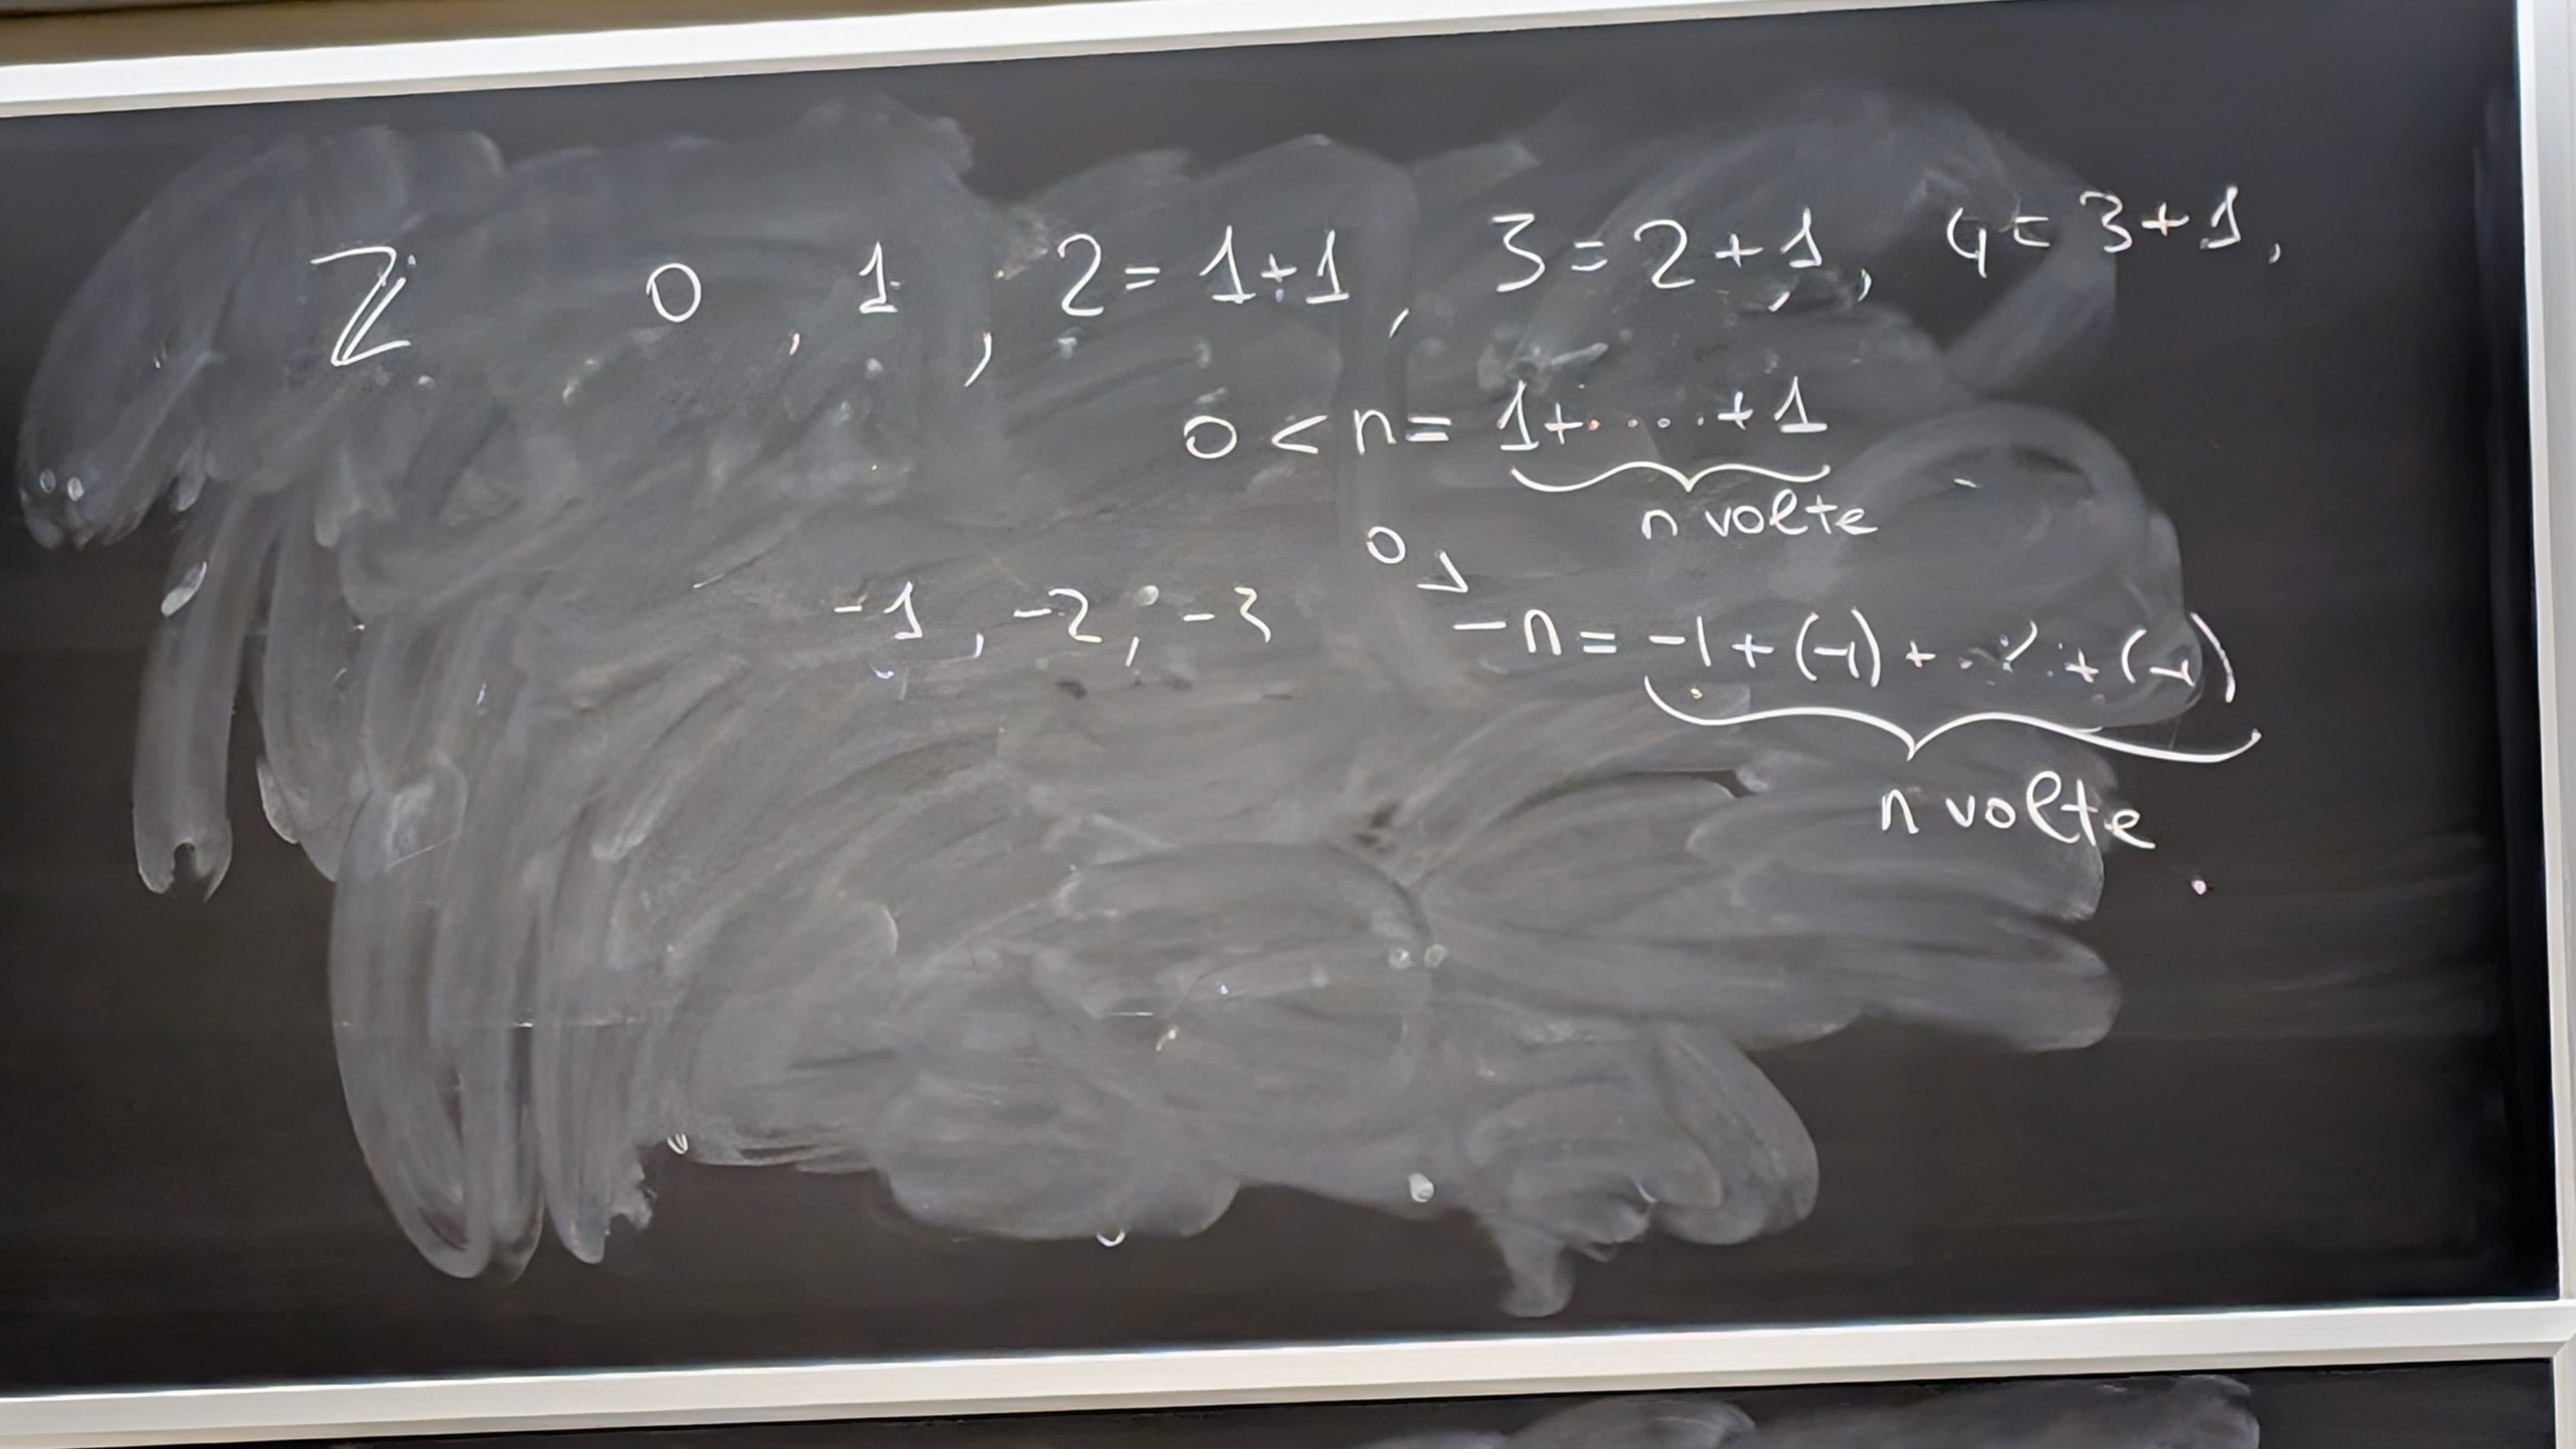 ℤ 0, 1, 2 = 1+1, 3 = 2+1, 4 = 3+1,
0 < n = 1+.....+1
n volte
0 >
-1, -2, -3 -n = -1+(-1)+...+(-1)
n volte